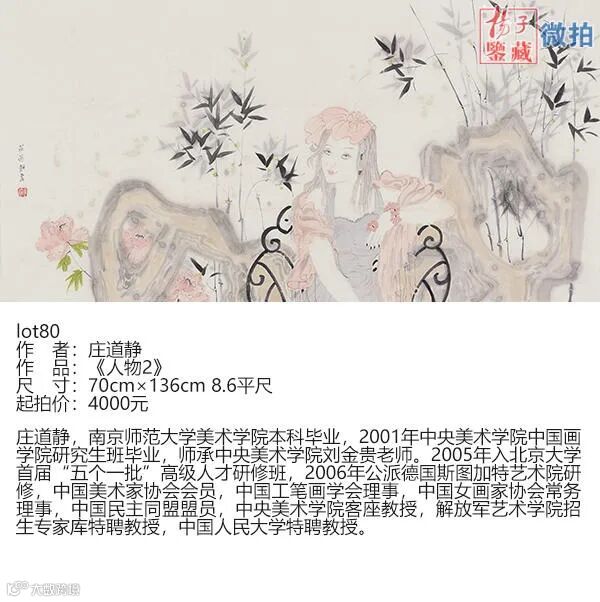 扬子鉴藏
微拍
lot80
作 者：庄道静
作 品：《人物2》
尺 寸：70cm×136cm 8.6平尺
起拍价：4000元
庄道静，南京师范大学美术学院本科毕业，2001年中央美术学院中国画
学院研究生班毕业，师承中央美术学院刘金贵老师。2005年入北京大学
首届“五个一批”高级人才研修班，2006年公派德国斯图加特艺术院研
修，中国美术家协会会员，中国工笔画学会理事，中国女画家协会常务
理事，中国民主同盟盟员，中央美术学院客座教授，解放军艺术学院招
生专家库特聘教授，中国人民大学特聘教授。
大数跨境